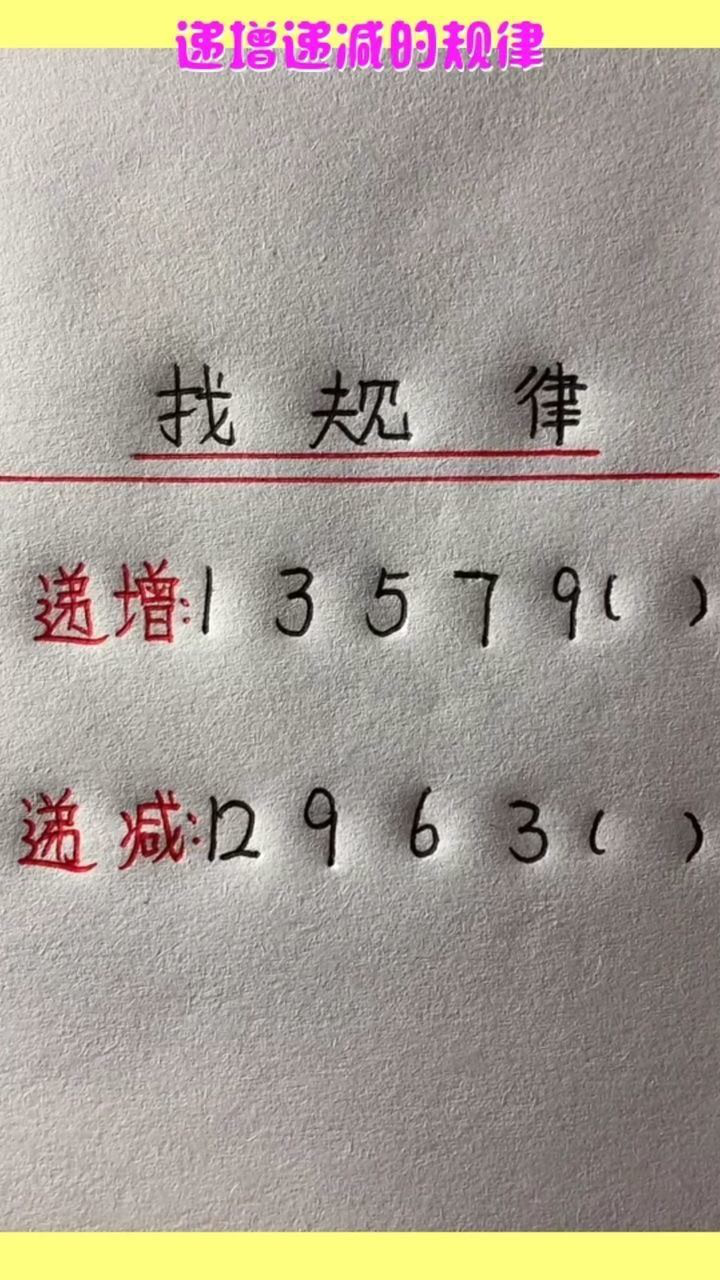 递增递减的规律
找 规 律
递增:1 3 5 7 9( )
递减:12 9 6 3( )